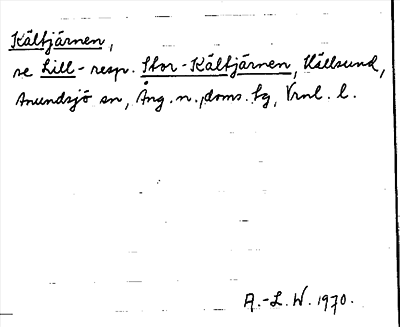 Kältjärnen,
se Lill- resp. Stor-Kältjärnen, Hällsund,
Anundsjö sn, Ång. n. doms. sg, Vrnl. l.
A.-L. W. 1970.